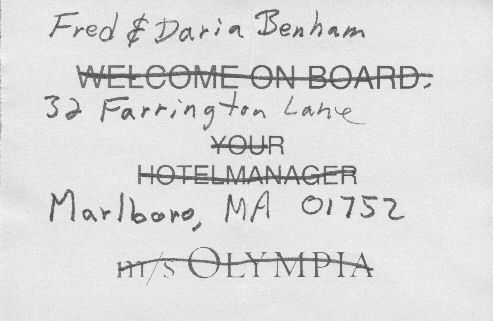 Fred & Daria Benham
WELCOME ON BOARD.
32 Farrington Lane
YOUR
HOTELMANAGER
Marlboro, MA 01752
m/s OLYMPIA